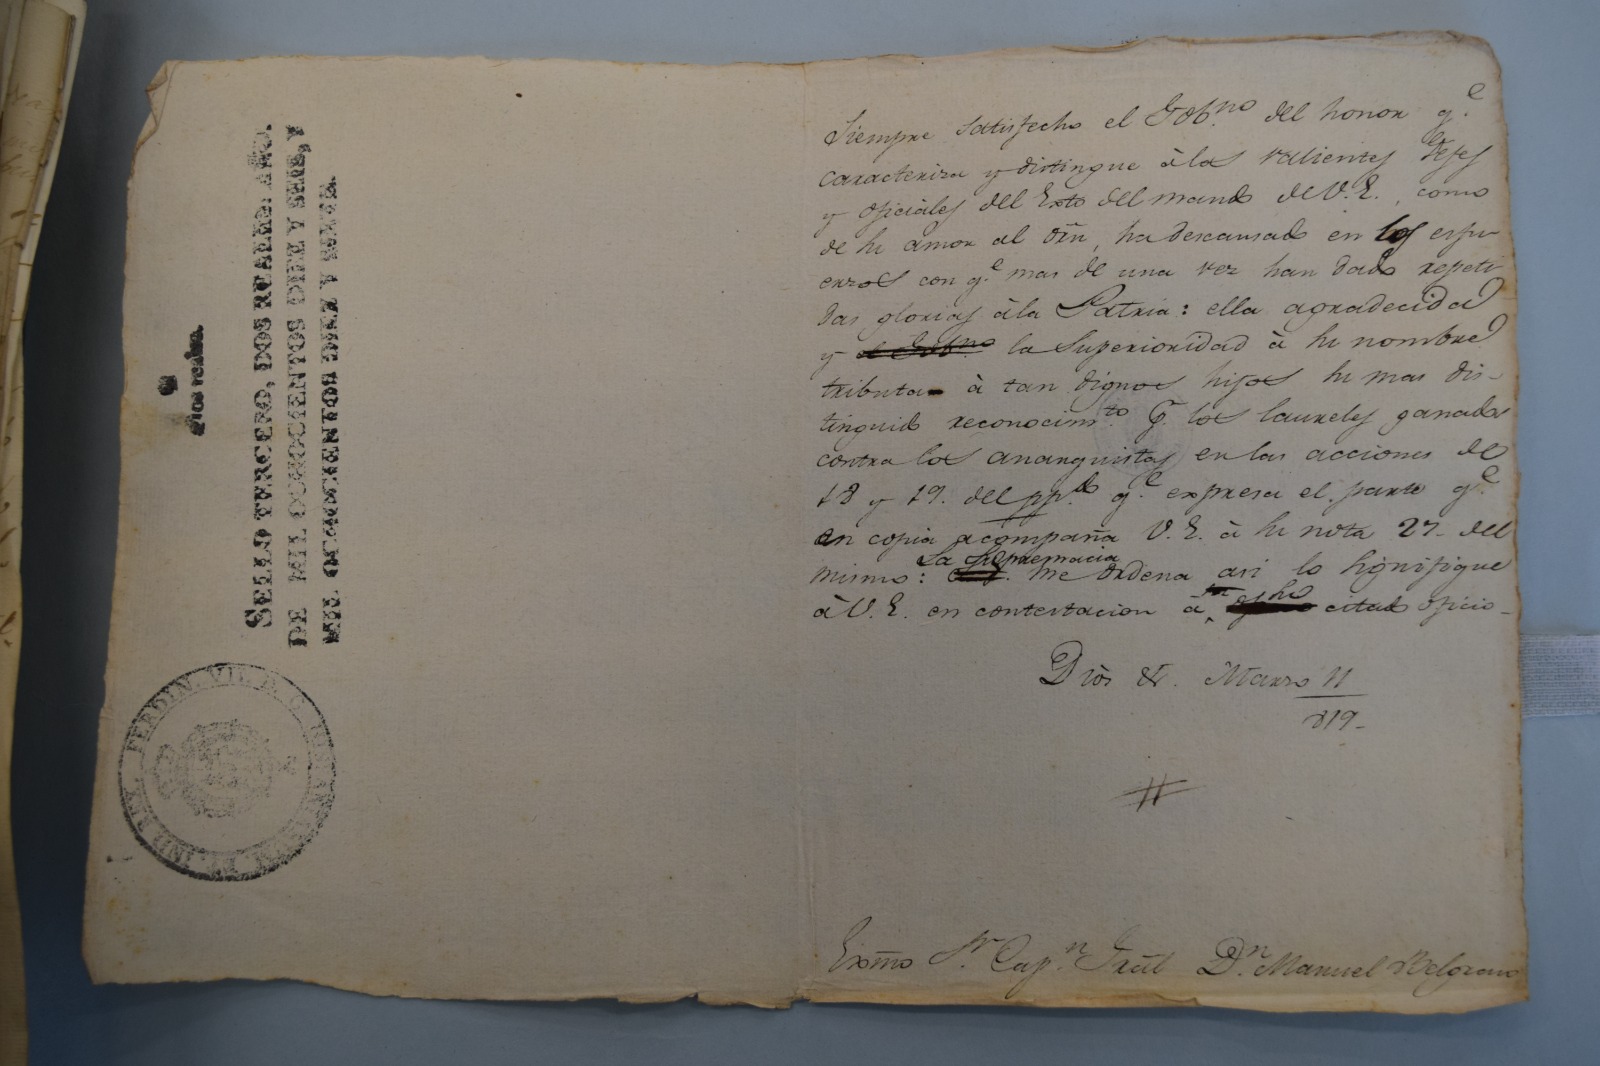 2 dos reales.
SELLO TERCERO, DOS REALES: AÑO
DE MIL OCHOCIENTOS DIEZ Y SEIS, Y
MIL OCHOCIENTOS DIEZ Y SIETE.
FERDIN. VII. D. G. HISPAN. ET IND. REX.
Siempre satisfecho el Gobno. del honor q.e
caracteriza y distingue à los valientes Gefes
y oficiales del Exto del mando de V. E., como
de su amor al orñ, ha descansado en los esfu-
erzos con q.e mas de una vez han dado repeti
das glorias à la Patria: ella agradecida
y el Gobno la Superioridad à su nombre
tributa à tan dignos hijos su mas dis-
tinguido reconocimto. p.r los laureles ganados
contra los anarquistas en las acciones de
18 y 19. del pp.do q.e expresa el parte q.e
en copia acompaña V. E. à su nota 27. del
mismo: La Supremacia me ordena asi lo signifique
à V. E. en contestacion à su citado oficio-
Dios &. Marzo 11
819-
Exmo S.r Cap.n Gral D.n Manuel Belgrano